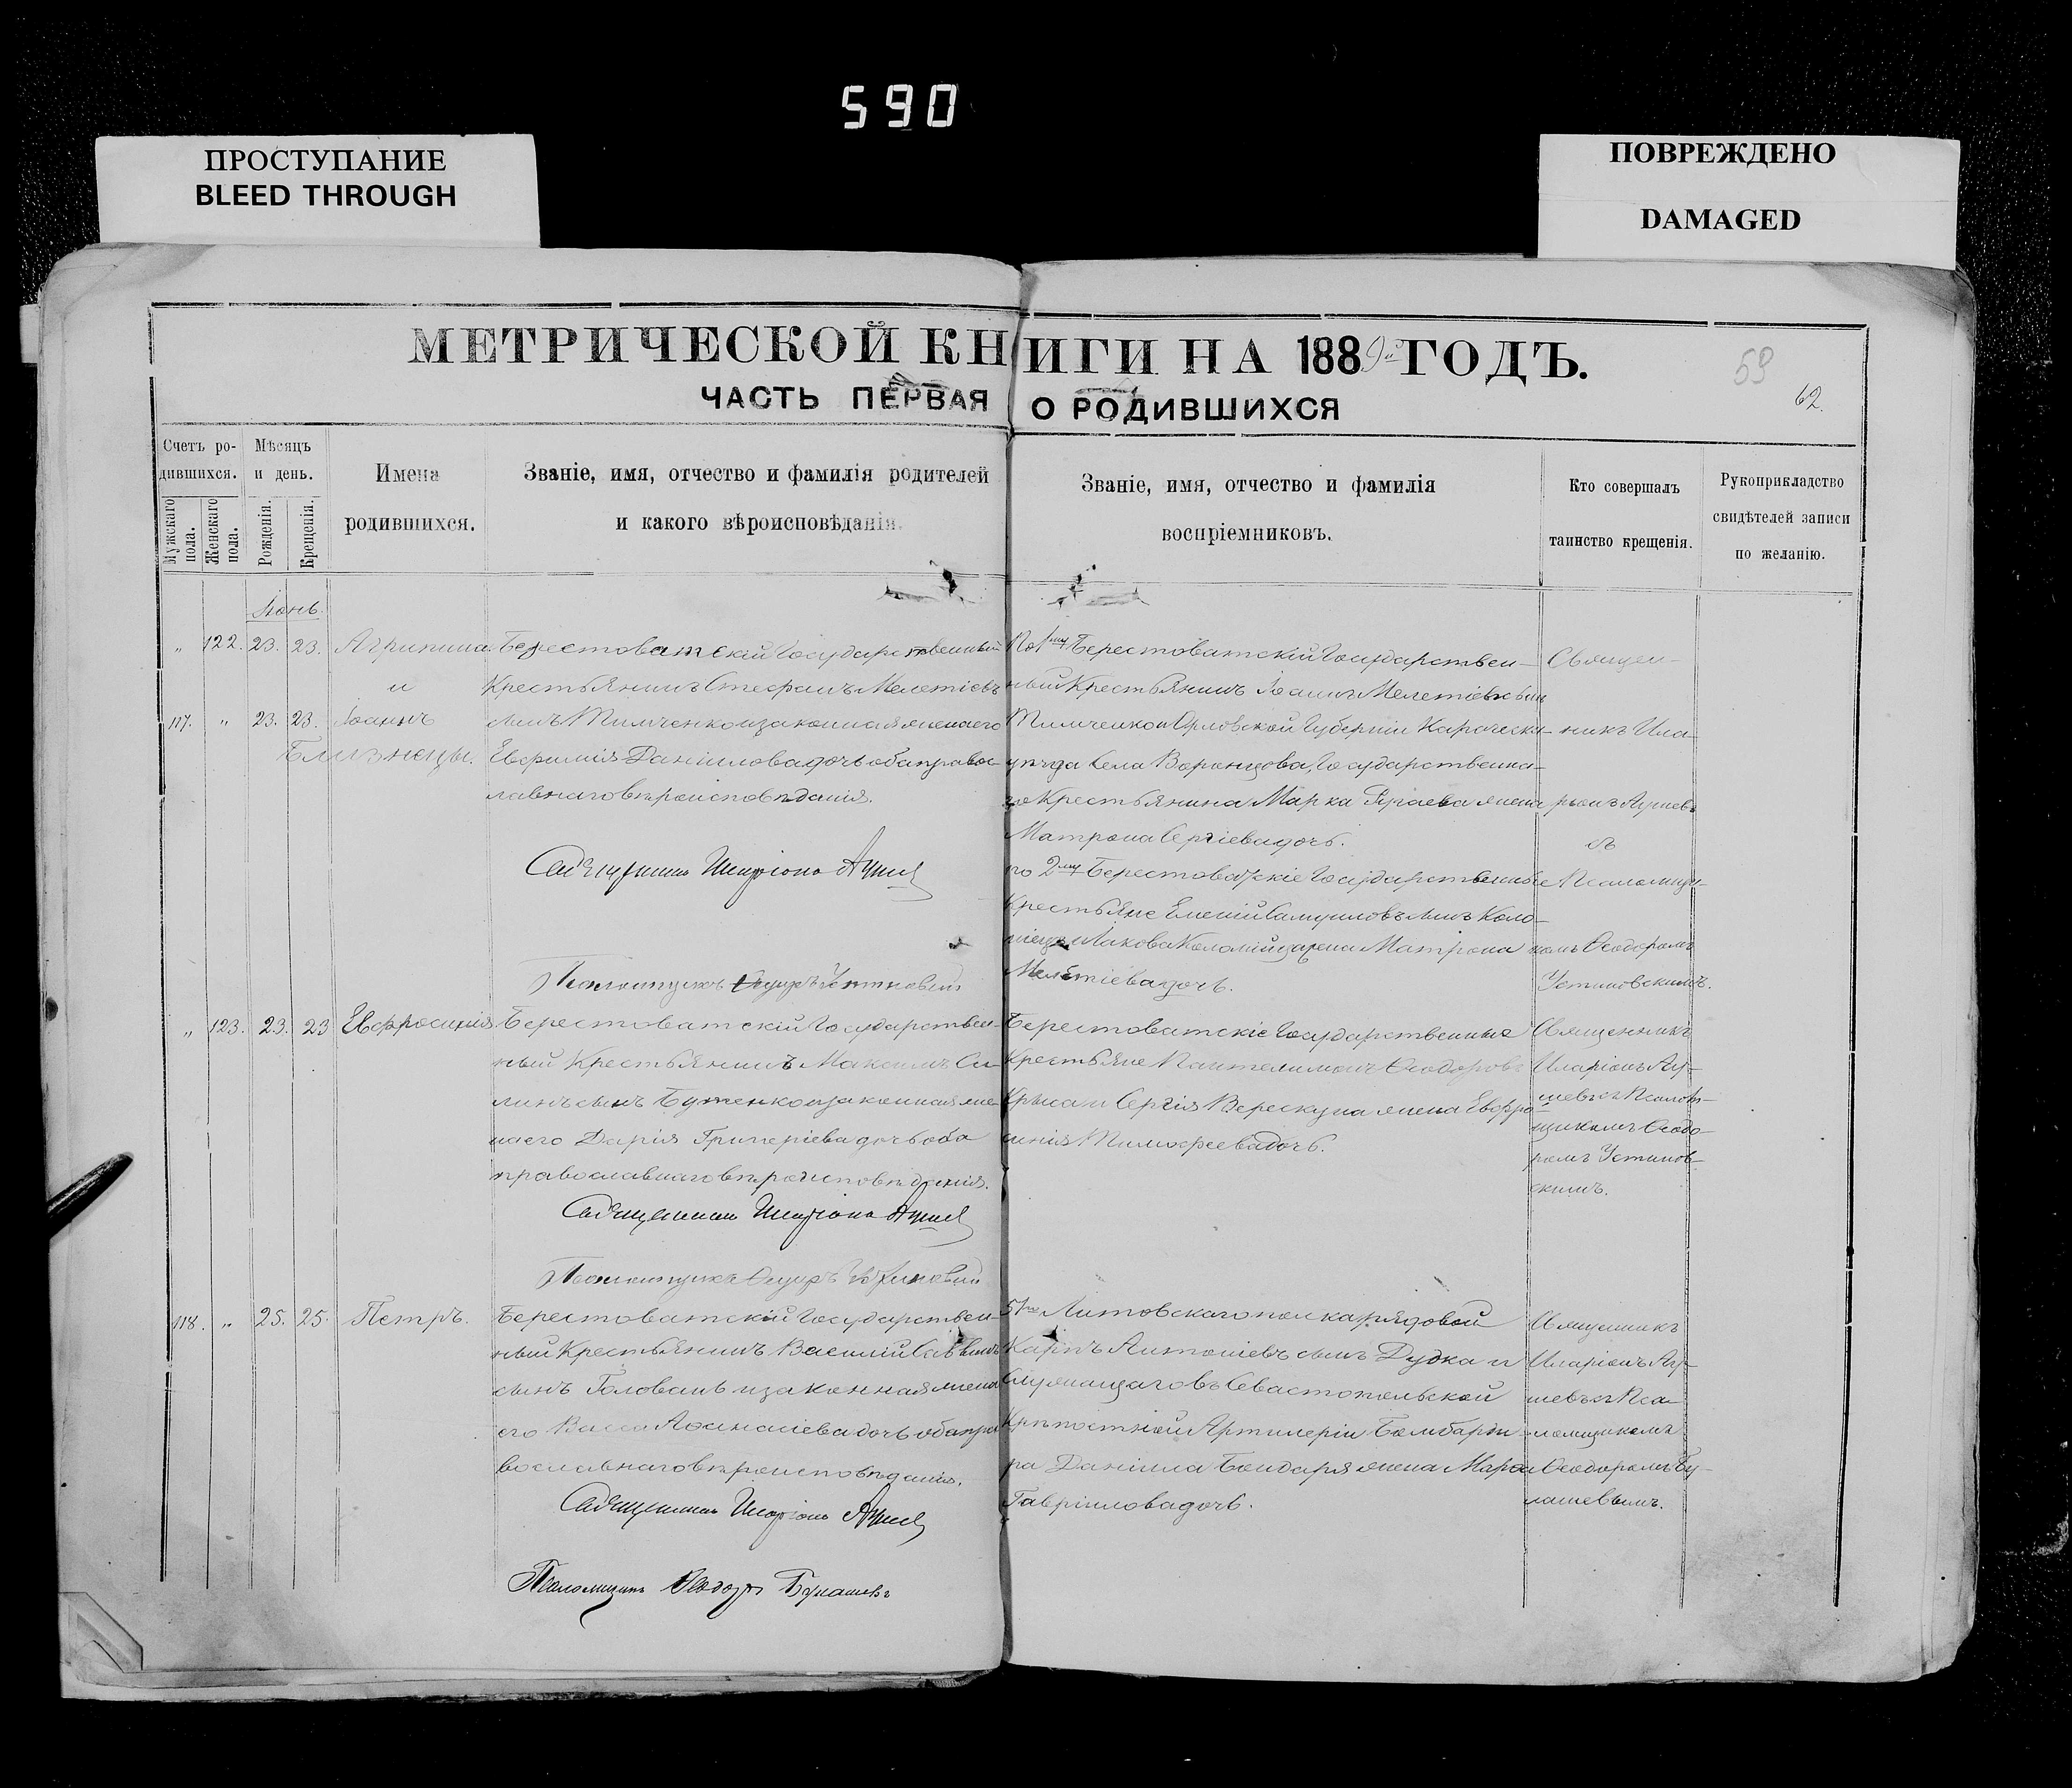 590
ПРОСТУПАНИЕ
BLEED THROUGH
ПОВРЕЖДЕНО
DAMAGED
МЕТРИЧЕСКОЙ КНИГИ НА 1889й ГОДЪ.
ЧАСТЬ ПЕРВАЯ О РОДИВШИХСЯ
59
62.
Счетъ ро-
дившихся.
Мужскаго пола.
Женскаго пола.
Мѣсяцъ
и день.
Рожденія.
Крещенія.
Имена
родившихся.
Званіе, имя, отчество и фамилія родителей
и какого вѣроисповѣданія.
Званіе, имя, отчество и фамилія
воспріемниковъ.
Кто совершалъ
таинство крещенія.
Рукоприкладство
свидѣтелей записи
по желанію.
Іюнь.
" 122. 23. 23. Агрипина
и
117. " 23. 23. Іоаннъ
Близнецы.
Берестоватскій Государственный
Крестьянинъ Стефанъ Мелетіевъ
сынъ Тимченко и законная жена его
Евфимія Даніилова дочь оба право-
лавнаго вѣроисповѣданія.
Священникъ Иларіонъ
Псаломщикъ
По 1му Берестоватскій Государствен-
ный Крестьянинъ Іоаннъ Мелетіевъ сынъ
Тимченко и Орловской Губерніи Карачевск-
уѣзда Села Воронцова, Государственна-
го Крестьянина Марка жена
Матрона Сергіева дочь.
по 2му Берестоватскіе Государственные
Крестьяне Самуиловъ сынъ Коло-
міецъ и Іакова Коломійца жена Матрона
Мелетіева дочь.
Священ-
никъ Ила-
ріонъ
съ
Псаломщи-
комъ Ѳеодоромъ
Устиновскимъ.
" 123. 23. 23 Евфросинія
Берестоватскій Государствен-
ный Крестьянинъ Максимъ Си-
линъ сынъ Бутенко и законная же-
на его Дарія Григоріева дочь оба
православнаго вѣроисповѣданія.
Священникъ Иларіонъ
Псаломщикъ
Берестоватскіе Государственные
Крестьяне Пантелимонъ Ѳеодоровъ
Крыса и Сергія Верескуна жена Евфро-
синія Тимофеева дочь.
Священникъ
Иларіонъ
съ Псалом-
щикомъ Ѳеодо-
ромъ Устинов-
скимъ.
118. " 25. 25. Петръ.
Берестоватскій Государствен-
ный Крестьянинъ Василій Саввинъ
сынъ Головань и законная жена
его Васса Аѳанасіева дочь оба пра-
вославнаго вѣроисповѣданія.
Священникъ Иларіонъ
Псаломщикъ Ѳеодоръ Булашевъ
51го Литовскаго полка рядовой
Карпъ Антоніевъ сынъ Дудка и
Служащаго въ Севастопольской
Крѣпостной Артилеріи Бомбарди-
ра Даніила Бондаря жена Марѳа
Гавріилова дочь.
Священникъ
Иларіонъ
съ Пса-
ломщикомъ
Ѳеодоромъ Бу-
лашевымъ.